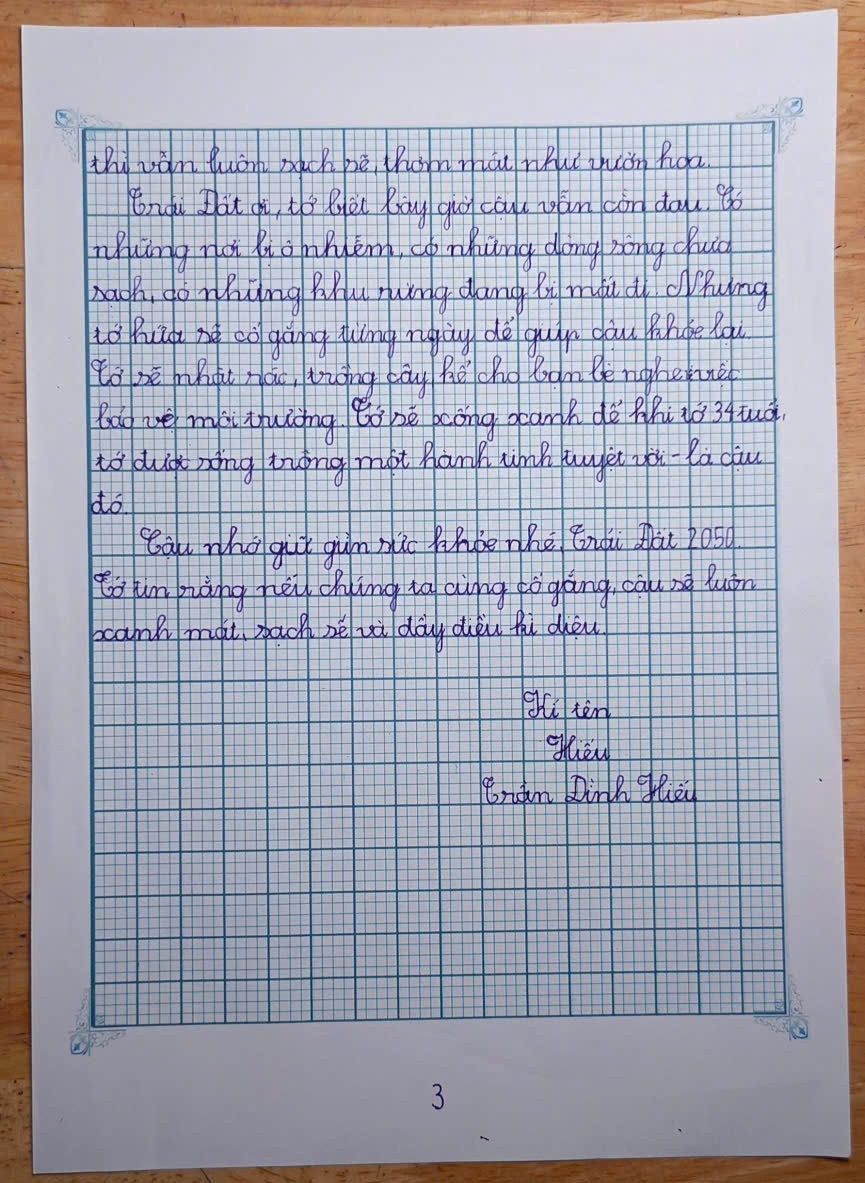 thì vẫn luôn sạch sẽ, thơm mát như vườn hoa.
Trái Đất ơi, tớ biết bây giờ cậu vẫn còn đau. Có
những nơi bị ô nhiễm, có những dòng sông chưa
sạch, có những khu rừng đang bị mất đi. Nhưng
tớ hứa sẽ cố gắng từng ngày để giúp cậu khỏe lại.
Tớ sẽ nhặt rác, trồng cây, kể cho bạn bè nghe việc
bảo vệ môi trường. Tớ sẽ sống xanh để khi tớ 34 tuổi,
tớ được sống trong một hành tinh tuyệt vời - là cậu
đó.
Cậu nhớ giữ gìn sức khỏe nhé, Trái Đất 2050.
Tớ tin rằng nếu chúng ta cùng cố gắng, cậu sẽ luôn
xanh mát, sạch sẽ và đầy điều kì diệu.
Kí tên
Hiếu
Trần Đình Hiếu
3